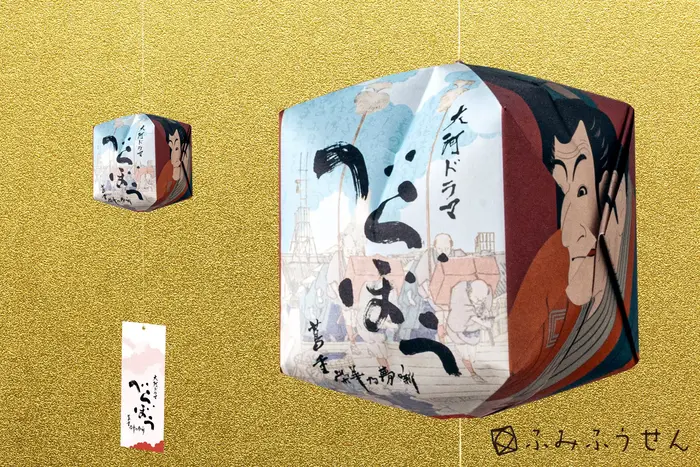 大河ドラマ
べらぼう
蔦重栄華乃夢噺
大河ドラマ
べらぼう
大河ドラマ
べらぼう
ふみふうせん